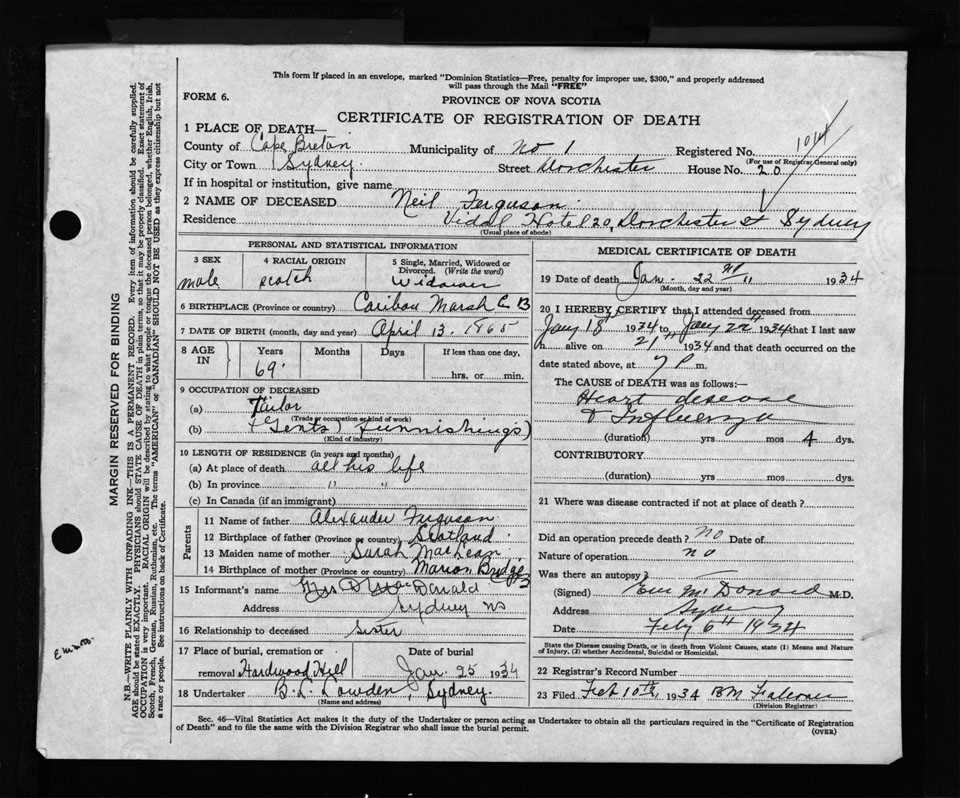 This form if placed in an envelope, marked "Dominion Statistics—Free, penalty for improper use, $300," and properly addressed
will pass through the Mail "FREE"
FORM 6.
PROVINCE OF NOVA SCOTIA
CERTIFICATE OF REGISTRATION OF DEATH
1 PLACE OF DEATH—
County of Cape Breton Municipality of No 1 Registered No. 1014
(For use of Registrar General only)
City or Town Sydney. Street Dorchester House No. 20
If in hospital or institution, give name
2 NAME OF DECEASED Neil Ferguson
Residence Vidal Hotel 20, Dorchester St Sydney
(Usual place of abode)
PERSONAL AND STATISTICAL INFORMATION
3 SEX male
4 RACIAL ORIGIN scotch
5 Single, Married, Widowed or Divorced. (Write the word) Widower
6 BIRTHPLACE (Province or country) Caribou Marsh C B
7 DATE OF BIRTH (month, day and year) April 13. 1865
8 AGE IN Years Months Days If less than one day,
69 hrs. or min.
9 OCCUPATION OF DECEASED
(a) Tailor
(Trade or occupation or kind of work)
(b) + (Gents) furnishings)
(Kind of industry)
10 LENGTH OF RESIDENCE (in years and months)
(a) At place of death all his life
(b) In province " "
(c) In Canada (if an immigrant)
Parents
11 Name of father Alexander Ferguson
12 Birthplace of father (Province or country) Scotland
13 Maiden name of mother Sarah MacLean
14 Birthplace of mother (Province or country) Marion Bridge CB
15 Informant's name Donald
Address Sydney NS
16 Relationship to deceased Sister
17 Place of burial, cremation or removal Hardwood Hill Date of burial Jan 25 1934
18 Undertaker B. L. Lowden Sydney.
(Name and address)
MEDICAL CERTIFICATE OF DEATH
19 Date of death Jan 22 nd 11 1934
(Month, day and year)
20 I HEREBY CERTIFY that I attended deceased from
Jany 18th 1934 to Jany 22nd 1934 that I last saw
h alive on 21st 1934 and that death occurred on the
date stated above, at 7 P m.
The CAUSE OF DEATH was as follows:—
Heart desease
+ Influenza
(duration) yrs mos 4 dys.
CONTRIBUTORY
(duration) yrs mos dys.
21 Where was disease contracted if not at place of death?
Did an operation precede death? no Date of
Nature of operation no
Was there an autopsy?
(Signed) McDonald M.D.
Address Sydney
Date Feby 6th 1934
State the Disease causing Death, or in death from Violent Causes, state (1) Means and Nature of Injury, (2) whether Accidental, Suicidal or Homicidal.
22 Registrar's Record Number
23 Filed Feb 10th, 1934 BM Falconer
(Division Registrar)
Sec. 46—Vital Statistics Act makes it the duty of the Undertaker or person acting as Undertaker to obtain all the particulars required in the "Certificate of Registration
of Death" and to file the same with the Division Registrar who shall issue the burial permit.
(OVER)
MARGIN RESERVED FOR BINDING
N.B.—WRITE PLAINLY WITH UNFADING INK—THIS IS A PERMANENT RECORD. Every item of information should be carefully supplied.
AGE should be stated EXACTLY. PHYSICIANS should STATE CAUSE OF DEATH in plain terms, so that it may be properly classified. Exact statement of
OCCUPATION is very important. RACIAL ORIGIN will be described by stating to what people or tongue the deceased person belonged, whether English, Irish,
Scotch, French, German, Russian, Ruthenian, etc. The terms "AMERICAN" or "CANADIAN" SHOULD NOT BE USED as they express citizenship but not
a race or people. See instructions on back of Certificate.